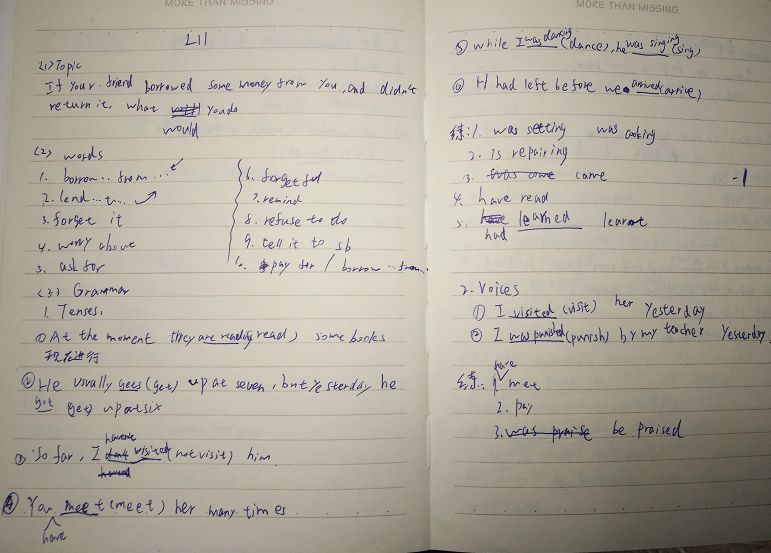 MORE THAN MISSING
L11
(1) Topic
If your friend borrowed some money from you, and didn't
return it, what would you do
(2) words
1. borrow... from...
2. lend... to...
3. forget it
4. worry about
5. ask for
6. forgetful
7. remind
8. refuse to do
9. tell it to sb
10. pay for / borrow... from...
(3) Grammar
1. Tenses.
① At the moment they are reading (read) some books
现在进行
② He usually gets (get) up at seven, but yesterday he
got (get) up at six
③ So far, I haven't visited (not visit) him
④ You have meet (meet) her many times
MORE THAN MISSING
⑤ while I was dancing (dance), he was singing (sing)
⑥ H had left before we arrived (arrive)
练: 1. was setting was cooking
2. is repairing
3. came
-1
4. have read
5. had learned learnt
2. Voices
① I visited (visit) her yesterday
② I was punished (punish) by my teacher yesterday
练: 1. have met
2. pay
3. was praise be praised